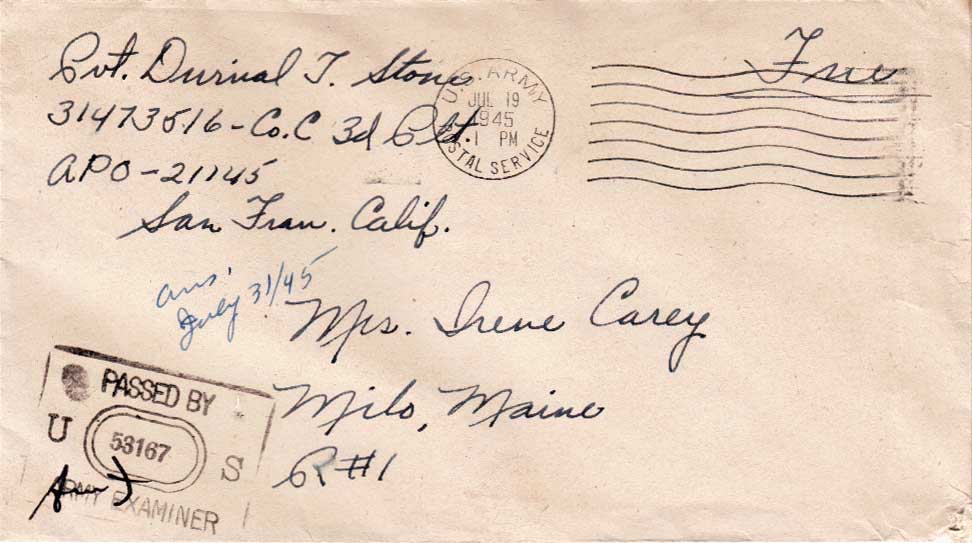 Pvt. Durival T. Stone
31473516-Co.C 3d Plt.
APO-21145
San Fran. Calif.
U.S. ARMY
JUL 19
1945
1 PM
POSTAL SERVICE
Free
ans.
July 31/45
Mrs. Irene Carey
Milo, Maine
R#1
PASSED BY
U 53167 S
ARMY EXAMINER